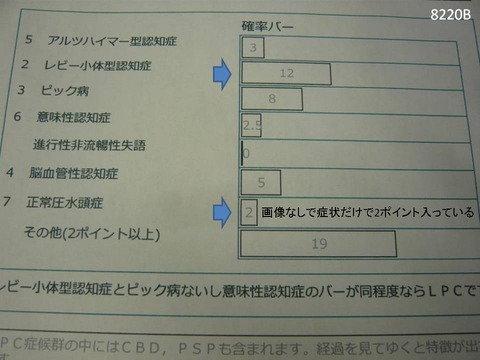 8220B
確率バー
5 アルツハイマー型認知症 3
2 レビー小体型認知症 12
3 ピック病 8
6 意味性認知症 2.5
進行性非流暢性失語 0
4 脳血管性認知症 5
7 正常圧水頭症 2 画像なしで症状だけで2ポイント入っている
その他(2ポイント以上) 19
レビー小体型認知症とピック病ないし意味性認知症のバーが同程度ならLPCで
PC症候群の中にはCBD，PSPも含まれます。経過を見てゆくと特徴が出